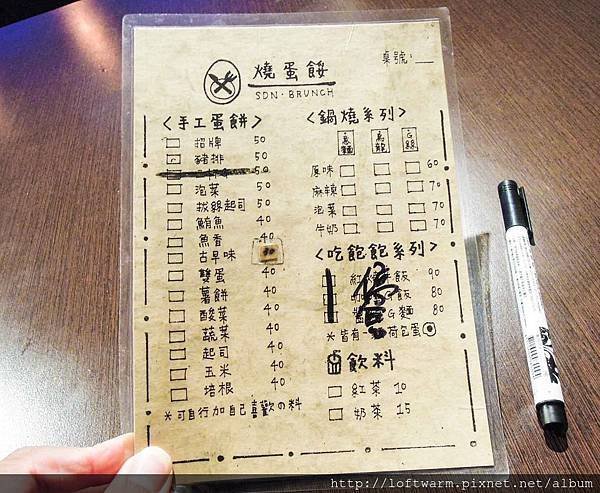 燒蛋餒
SDN·BRUNCH
桌號:
<手工蛋餅>
招牌 50
豬排 50
50
泡菜 50
拔絲起司 50
鮪魚 40
魚香 40
古早味 30
雙蛋 40
薯餅 40
酸菜 40
蔬菜 40
起司 40
玉米 40
培根 40
*可自行加自己喜歡の料
<鍋燒系列>
意麵 烏龍 G絲
原味 60
麻辣 70
泡菜 70
牛奶 70
<吃飽飽系列>
停賣
紅 飯 90
G飯 80
G麵 80
*皆有一 荷包蛋
飲料
紅茶 10
奶茶 15
http://loftwarm.pixnet.net/album